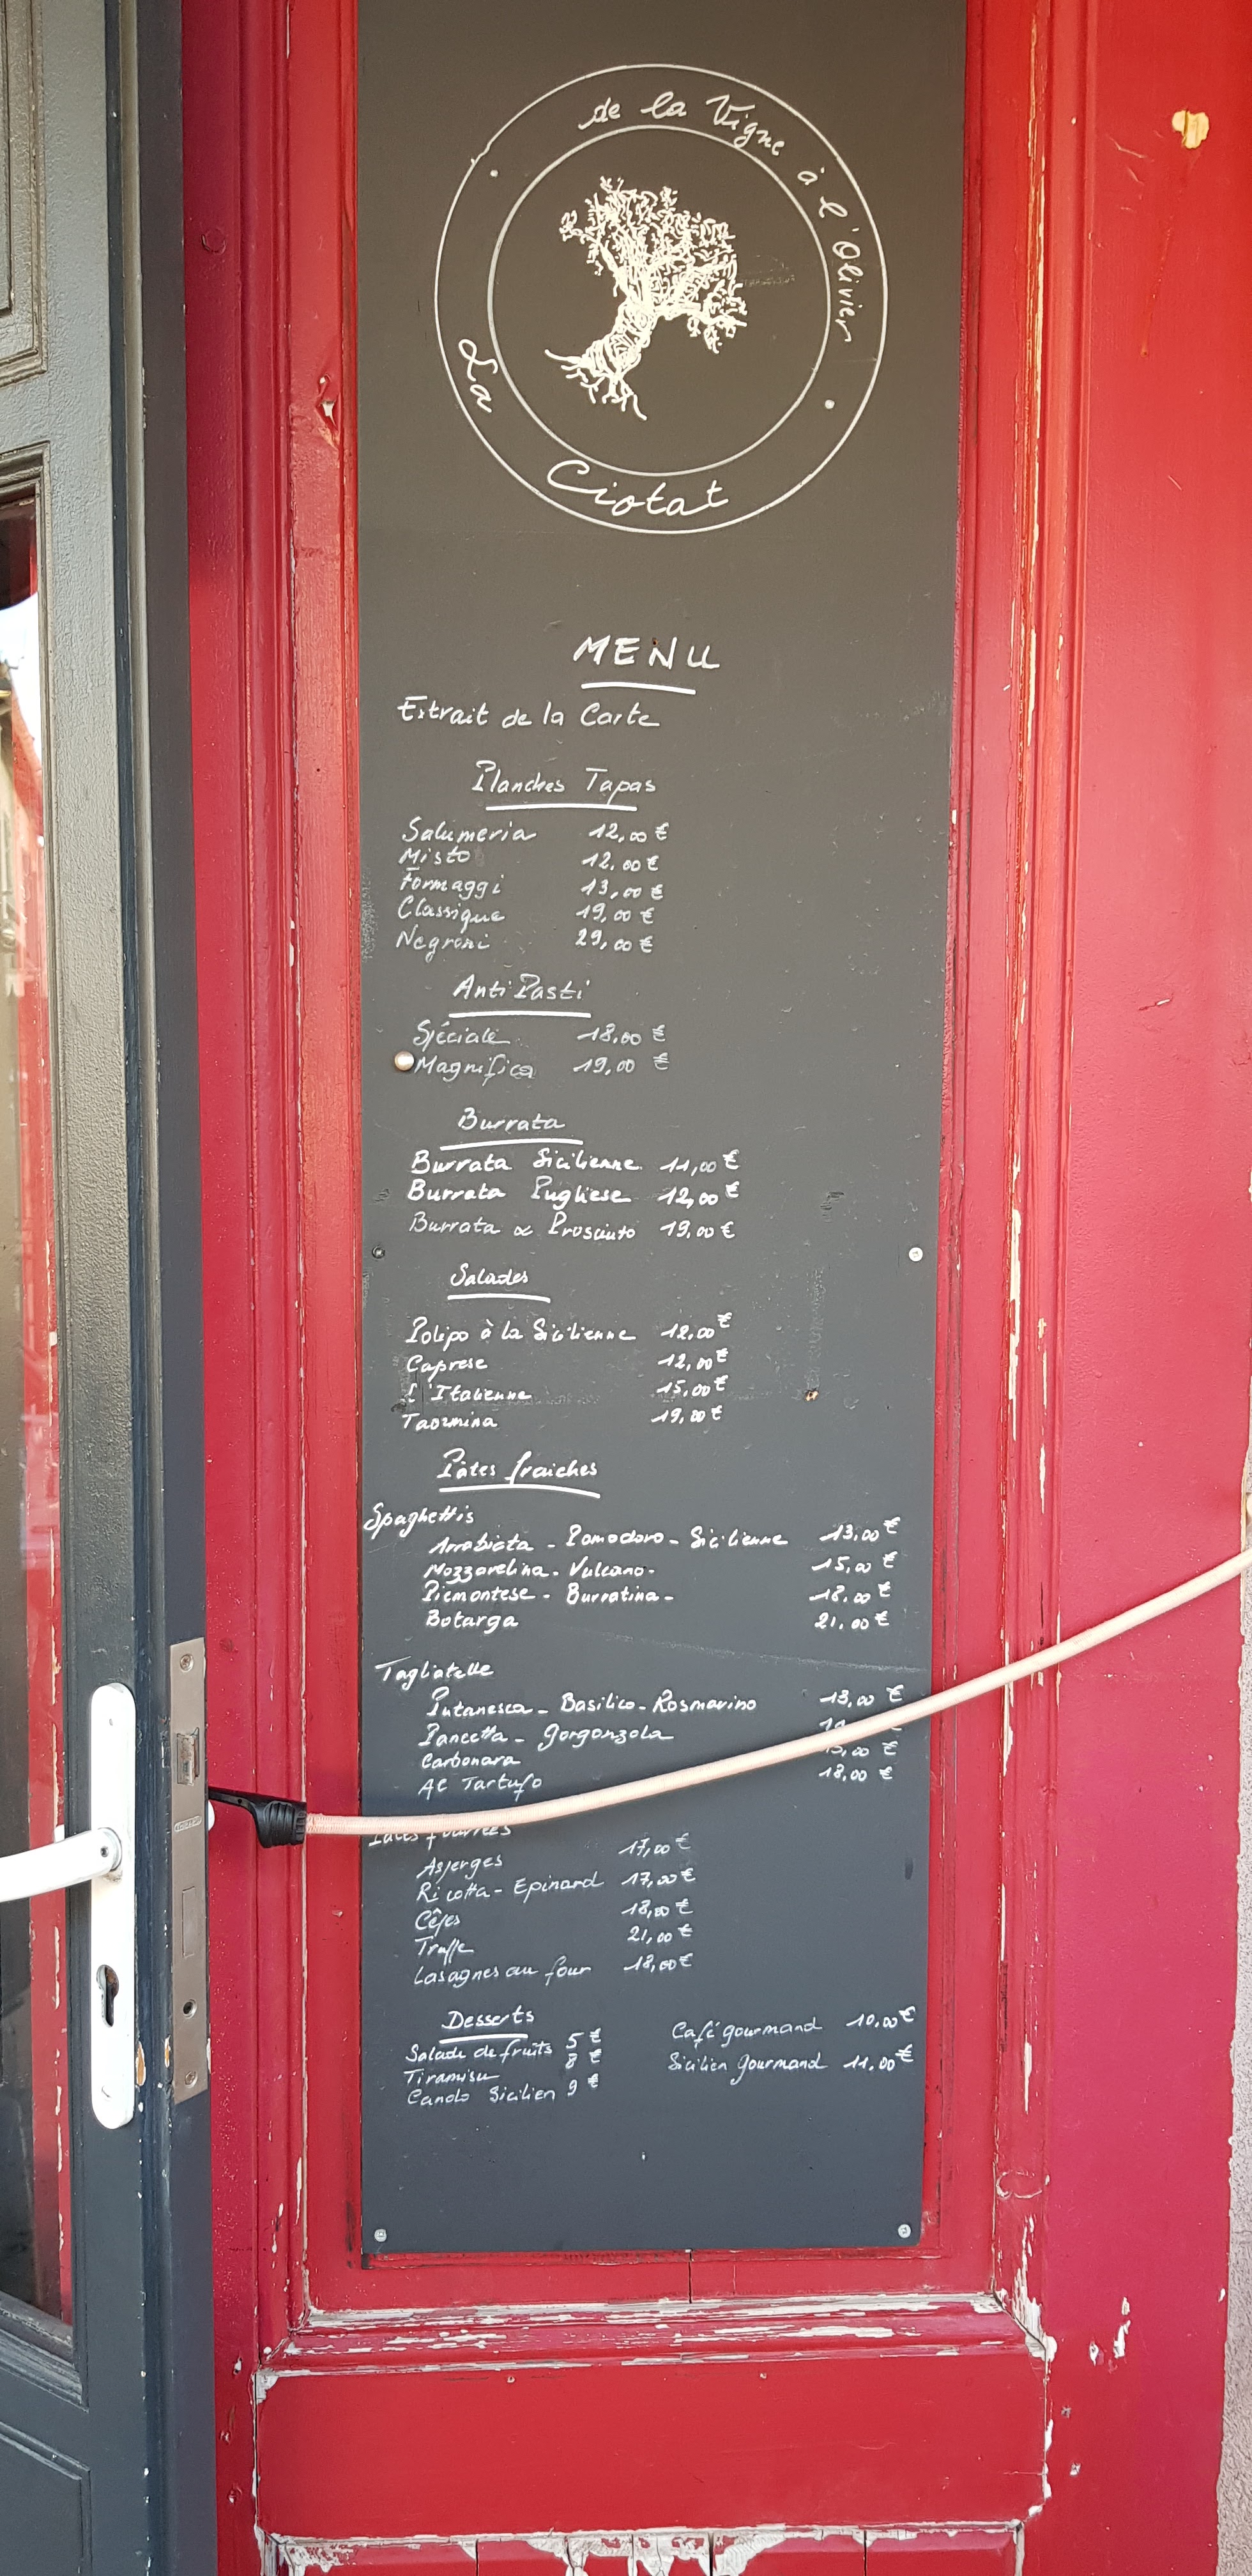 de la Vigne à l'Olivier
La Ciotat
MENU
Extrait de la Carte
Planches Tapas
Salumeria 12,00 €
Misto 12,00 €
Formaggi 13,00 €
Classique 19,00 €
Negroni 29,00 €
Anti Pasti
Spéciale 18,00 €
Magnifica 19,00 €
Burrata
Burrata Sicilienne 11,00 €
Burrata Pugliese 12,00 €
Burrata & Prosciuto 19,00 €
Salades
Polipo à la Sicilienne 12,00 €
Caprese 12,00 €
L'Italienne 15,00 €
Taormina 19,00 €
Pâtes fraiches
Spaghettis
Arrabiata - Pomodoro - Sicilienne 13,00 €
Mozzarelina - Vulcano - 15,00 €
Piemontese - Burratina - 18,00 €
Botarga 21,00 €
Tagliatelle
Putanesca - Basilico - Rosmarino 13,00 €
Pancetta - Gorgonzola €
Carbonara 15,00 €
Al Tartufo 18,00 €
Pâtes fourrées
Asperges 17,00 €
Ricotta - Epinard 17,00 €
Cêpes 18,00 €
Truffe 21,00 €
Lasagnes au four 18,00 €
Desserts
Salade de fruits 5 €
Tiramisu 8 €
Canolo Sicilien 9 €
Café gourmand 10,00 €
Sicilien gourmand 11,00 €